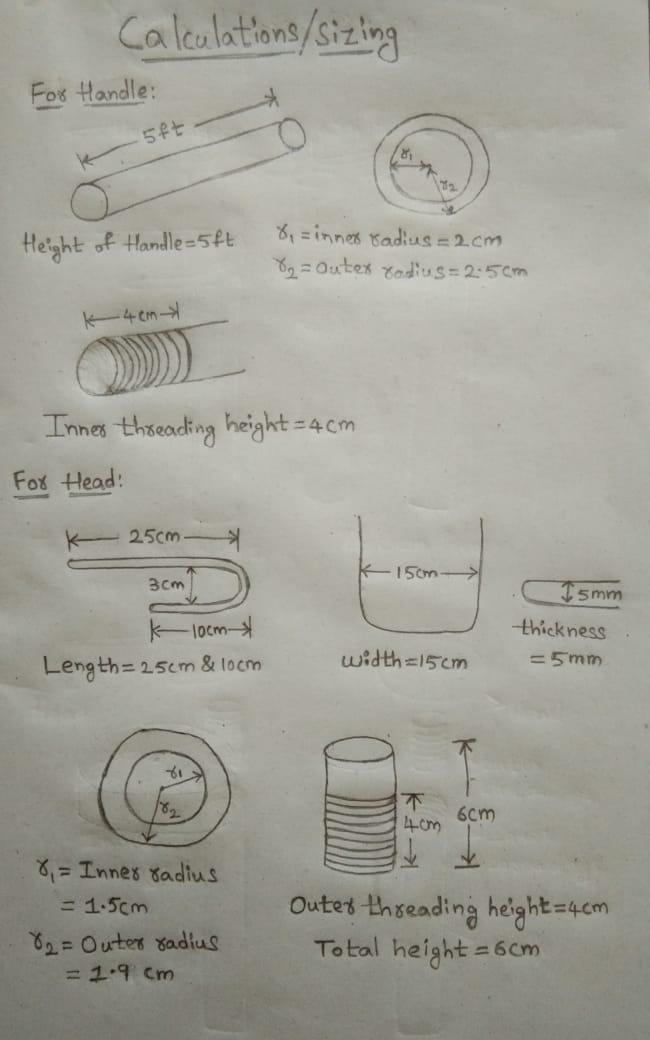 Calculations/sizing
For Handle:
5ft
r1
r2
Height of Handle=5ft
r1=inner radius=2cm
r2=Outer radius=2.5cm
4cm
Inner threading height=4cm
For Head:
25cm
3cm
10cm
Length=25cm & 10cm
15cm
width=15cm
5mm
thickness
=5mm
r1
r2
r1= Inner radius
= 1.5cm
r2= Outer radius
= 1.9 cm
4cm
6cm
Outer threading height=4cm
Total height=6cm